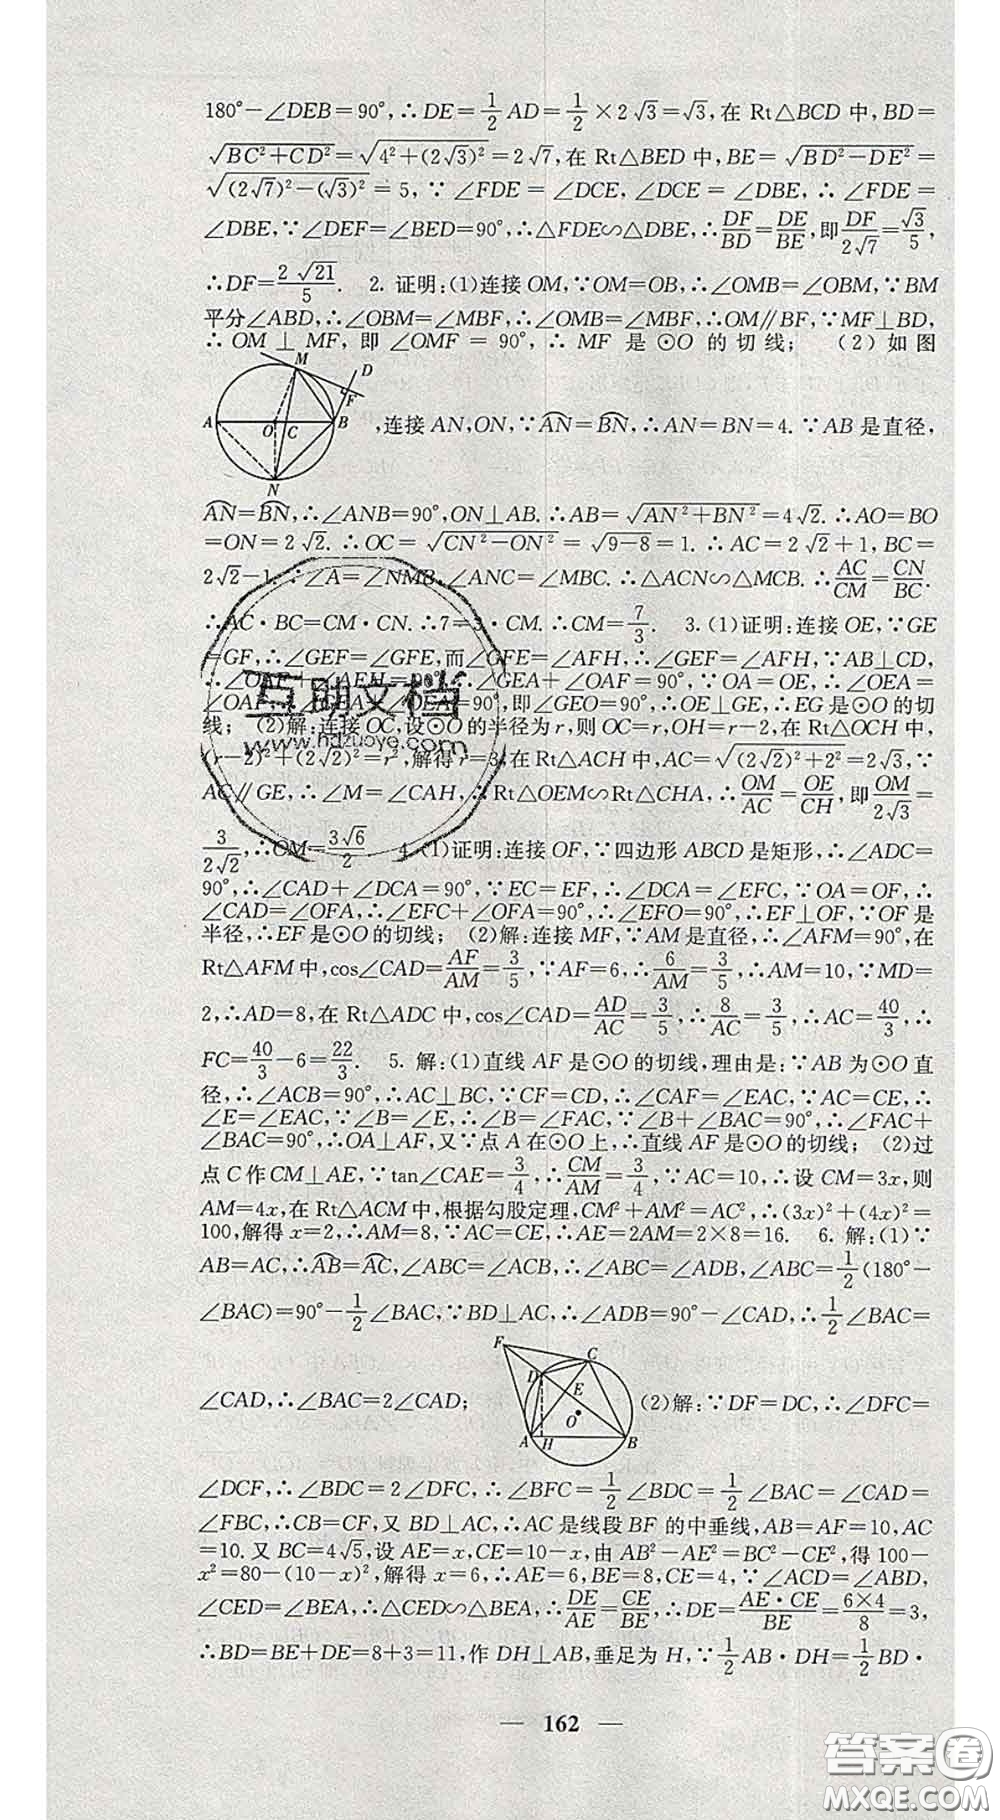 180°−∠DEB=90°,∴DE=1/2 AD=1/2×2√3=√3,在 Rt△BCD 中,BD=
√(BC²+CD²)=√(4²+(2√3)²)=2√7,在 Rt△BED 中,BE=√(BD²−DE²)=
√((2√7)²−(√3)²)=5,∵∠FDE=∠DCE,∠DCE=∠DBE,∴∠FDE=
∠DBE,∵∠DEF=∠BED=90°,∴△FDE∽△DBE,∴DF/BD=DE/BE,即DF/2√7=√3/5,
∴DF=2√21/5. 2. 证明:(1)连接 OM,∵OM=OB,∴∠OMB=∠OBM,∵BM
平分∠ABD,∴∠OBM=∠MBF,∴∠OMB=∠MBF,∴OM∥BF,∵MF⊥BD,
∴OM⊥MF,即∠OMF=90°,∴MF 是⊙O 的切线; (2)如图
M D F A O C B N
,连接 AN,ON,∵A͡N=B͡N,∴AN=BN=4.∵AB 是直径,
A͡N=B͡N,∴∠ANB=90°,ON⊥AB.∴AB=√(AN²+BN²)=4√2.∴AO=BO
=ON=2√2.∴OC=√(CN²−ON²)=√(9−8)=1.∴AC=2√2+1,BC=
2√2−1.∵∠A=∠NMB,∠ANC=∠MBC.∴△ACN∽△MCB.∴AC/CM=CN/BC.
∴AC·BC=CM·CN.∴7=3·CM.∴CM=7/3. 3.(1)证明:连接 OE,∵GE
=GF,∴∠GEF=∠GFE,而∠GFE=∠AFH,∴∠GEF=∠AFH,∵AB⊥CD,
∴∠OAF+∠AFH=90°,∴∠GEA+∠OAF=90°,∵OA=OE,∴∠OEA=
∠OAF,∴∠GEA+∠OEA=90°,即∠GEO=90°,∴OE⊥GE,∴EG 是⊙O 的切
线; (2)解:连接 OC,设⊙O 的半径为 r,则 OC=r,OH=r−2,在 Rt△OCH 中,
(r−2)²+(2√2)²=r²,解得 r=3,在 Rt△ACH 中,AC=√((2√2)²+2²)=2√3,∵
AC∥GE,∴∠M=∠CAH,∴Rt△OEM∽Rt△CHA,∴OM/AC=OE/CH,即OM/2√3=
3/2√2,∴OM=3√6/2 4.(1)证明:连接 OF,∵四边形 ABCD 是矩形,∴∠ADC=
90°,∴∠CAD+∠DCA=90°,∵EC=EF,∴∠DCA=∠EFC,∵OA=OF,∴
∠CAD=∠OFA,∴∠EFC+∠OFA=90°,∴∠EFO=90°,∴EF⊥OF,∵OF 是
半径,∴EF 是⊙O 的切线; (2)解:连接 MF,∵AM 是直径,∴∠AFM=90°,在
Rt△AFM 中,cos∠CAD=AF/AM=3/5,∵AF=6,∴6/AM=3/5,∴AM=10,∵MD=
2,∴AD=8,在 Rt△ADC 中,cos∠CAD=AD/AC=3/5,∴8/AC=3/5,∴AC=40/3,∴
FC=40/3−6=22/3. 5. 解:(1)直线 AF 是⊙O 的切线,理由是:∵AB 为⊙O 直
径,∴∠ACB=90°,∴AC⊥BC,∵CF=CD,∴∠CAF=∠EAC,∵AC=CE,∴
∠E=∠EAC,∵∠B=∠E,∴∠B=∠FAC,∵∠B+∠BAC=90°,∴∠FAC+
∠BAC=90°,∴OA⊥AF,又∵点 A 在⊙O 上,∴直线 AF 是⊙O 的切线; (2)过
点 C 作 CM⊥AE,∵tan∠CAE=3/4,∴CM/AM=3/4,∵AC=10,∴设 CM=3x,则
AM=4x,在 Rt△ACM 中,根据勾股定理,CM²+AM²=AC²,∴(3x)²+(4x)²=
100,解得 x=2,∴AM=8,∵AC=CE,∴AE=2AM=2×8=16. 6. 解:(1)∵
AB=AC,∴A͡B=A͡C,∠ABC=∠ACB,∴∠ABC=∠ADB,∠ABC=1/2(180°−
∠BAC)=90°−1/2∠BAC,∵BD⊥AC,∴∠ADB=90°−∠CAD,∴1/2∠BAC=
∠CAD,∴∠BAC=2∠CAD;
F C D E O A H B
(2)解:∵DF=DC,∴∠DFC=
∠DCF,∴∠BDC=2∠DFC,∴∠BFC=1/2∠BDC=1/2∠BAC=∠CAD=
∠FBC,∴CB=CF,又 BD⊥AC,∴AC 是线段 BF 的中垂线,AB=AF=10,AC
=10.又 BC=4√5,设 AE=x,CE=10−x,由 AB²−AE²=BC²−CE²,得 100−
x²=80−(10−x)²,解得 x=6,∴AE=6,BE=8,CE=4,∵∠ACD=∠ABD,
∠CED=∠BEA,∴△CED∽△BEA,∴DE/AE=CE/BE,∴DE=AE·CE/BE=6×4/8=3,
∴BD=BE+DE=8+3=11,作 DH⊥AB,垂足为 H,∵1/2 AB·DH=1/2 BD·
— 162 —
互助文档
www.hdzuoye.com
答案圈
MXQE.COM